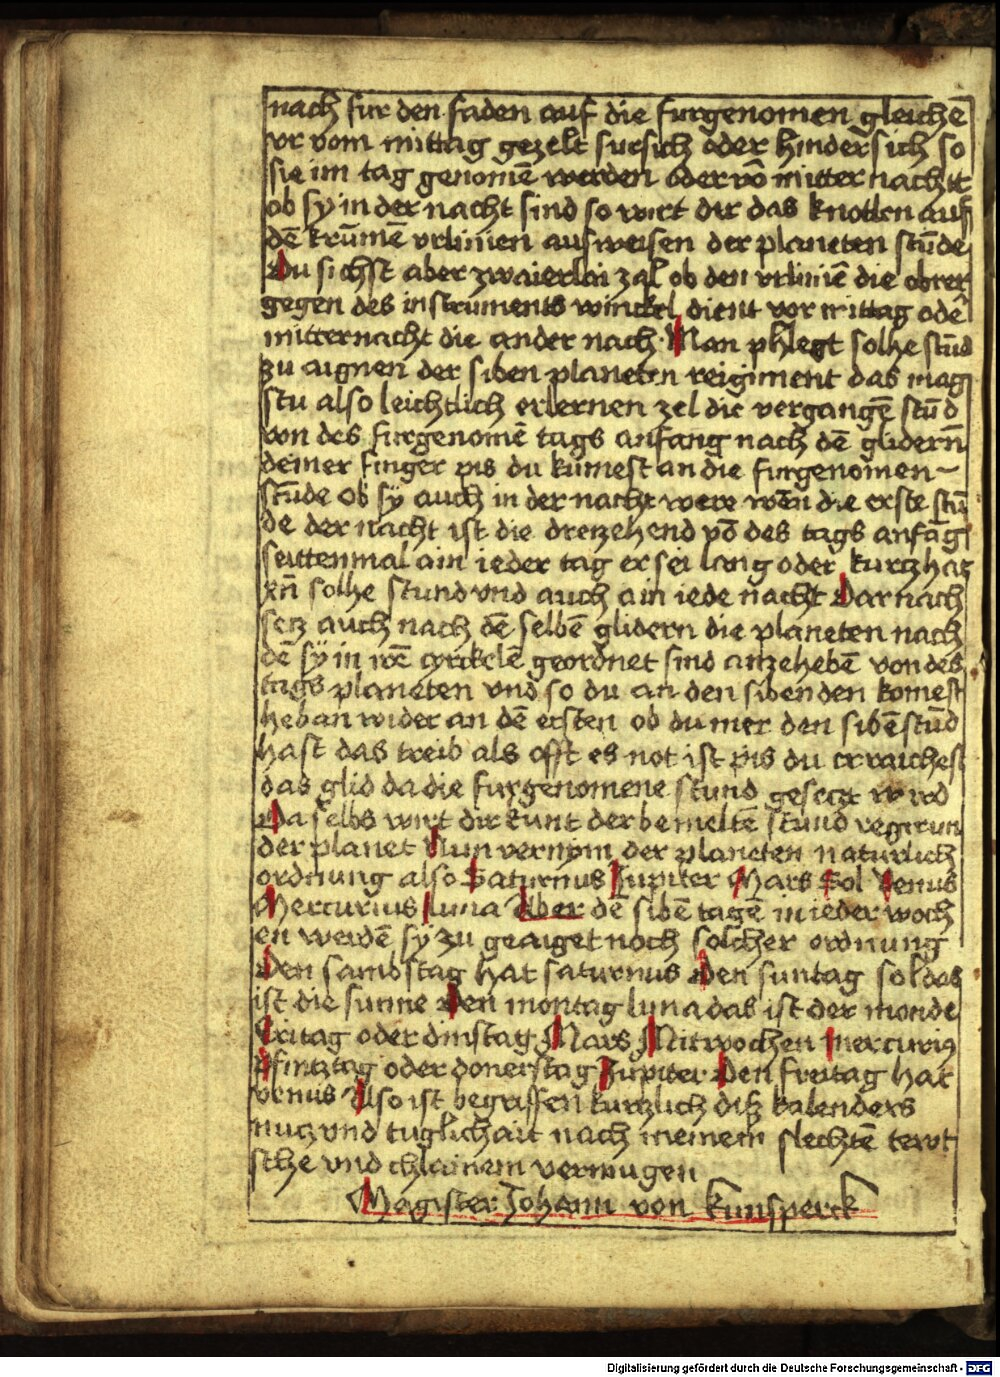 nach fur den faden auf die furgenomen gleichē
vr vom mittag gezelt fursich oder hindersich so
sie im tag genomē werden oder vō mitternachtt
ob sy in der nacht sind so wirt dir das knotlen auf
dē krūmē vrlinien ausweisen der planeten stūde
Du sichst aber zwaierlai zal ob den vrliniē die obrer
gegen des instruments winckel dient vor mittag odē
mitternacht die ander nach Man phlegt solhe stūd
zu aignen der siben planeten reigiment das mag
stu also leichtlich erlernen zel die vergangē stūd
von des furgenomē tags anfang nach dē glidern
deiner finger pis du kūmest an die furgenomen
stūde ob sy auch in der nacht were wēn die erste stū
de der nacht ist die dreizehend vō des tags anfāg
seittenmal ain ieder tag er sei lang oder kurcz hat
xii solhe stund vnd auch ain iede nacht Darnach
secz auch nach dē selbē glidern die planeten nach
dē sy in irē cyrckelē geordnet sind anzehebē von des
tags planeten vnd so du an den sibenden komest
heb an wider an dē ersten ob du mer den sibē stūd
hast das treib als offt es not ist pis du erraichest
das glid da die furgenomene stund geseczt wird
Da selbs wirt dir kunt der bemeltē stund regirun
der planet Nun vernym der planeten naturlich
ordnung also Saturnus Jupiter Mars Sol Venus
Mercurius luna Aber dē sibē tagē in ieder woch
en werdē sy zu geaiget noch solcher ordnung
Den sambstag hat saturnus Den suntag sol das
ist die sunne Den montag luna das ist der monde
Eritag oder dinstag Mars Mitwochen mercuriꝯ
Pfincztag oder donerstag Jupiter Den freitag hat
venus Also ist begriffen kurczlich dicz kalenders
nucz vnd tuglichait nach meinem slechtē tewt
sche vnd chlainem vermugen
Magister Johann von kunsperck
Digitalisierung gefördert durch die Deutsche Forschungsgemeinschaft - DFG